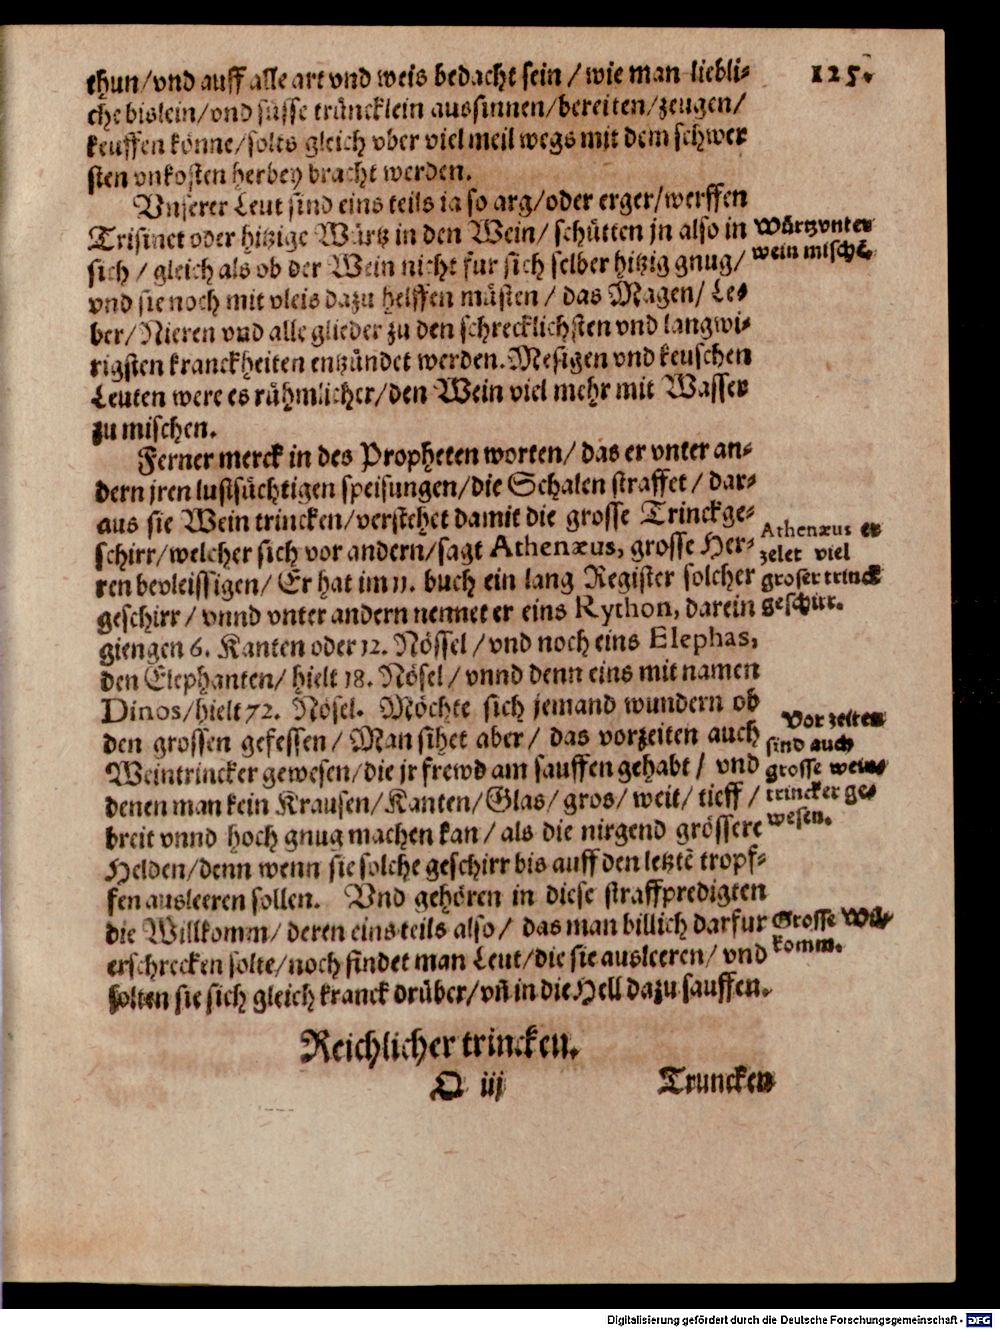 125.
thun/vnd auff alle art vnd weis bedacht sein/wie man liebli-
che bislein/vnd süsse trüncklein aussinnen/bereiten/zeugen/
keuffen könne/solts gleich vber viel meil wegs mit dem schwer
sten vnkosten herbey bracht werden.
Vnserer Leut sind eins teils ia so arg/oder erger/werffen
Trisinet oder hitzige Würtz in den Wein/schütten jn also in
sich/gleich als ob der Wein nicht fur sich selber hitzig gnug/
vnd sie noch mit vleis dazu helffen müsten/das Magen/Le-
ber/Nieren vnd alle glieder zu den schrecklichsten vnd langwi-
rigsten kranckheiten entzündet werden. Mesigen vnd keuschen
Leuten were es rühmlicher/den Wein viel mehr mit Wasser
zu mischen.
Würtz vnter
wein mischē.
Ferner merck in des Propheten worten/das er vnter an-
dern jren lustsüchtigen speisungen/die Schalen straffet/dar-
aus sie Wein trincken/verstehet damit die grosse Trinckge-
schirr/welcher sich vor andern/sagt Athenæus, grosse Her-
ren bevleissigen/Er hat im 11. buch ein lang Register solcher
geschirr/vnnd vnter andern nennet er eins Rython, darein
giengen 6. Kanten oder 12. Nössel/vnd noch eins Elephas,
den Elephanten/hielt 18. Nösel/vnnd denn eins mit namen
Dinos/hielt 72. Nösel. Möchte sich jemand wundern ob
den grossen gefessen/Man sihet aber/das vorzeiten auch
Weintrincker gewesen/die jr frewd am sauffen gehabt/vnd
denen man kein Krausen/Kanten/Glas/gros/weit/tieff/
breit vnnd hoch gnug machen kan/als die nirgend grössere
Helden/denn wenn sie solche geschirr bis auff den letztē tropf-
fen ausleeren sollen. Vnd gehören in diese straffpredigten
die Willkomm/deren eins teils also/das man billich darfur
erschrecken solte/noch findet man Leut/die sie ausleeren/vnd
solten sie sich gleich kranck drüber/vñ in die Hell dazu sauffen.
Athenæus er
zelet viel
groser trinck
geschirr.
Vor zeiten
sind auch
grosse wein-
trincker ge-
wesen.
Grosse Wil-
komm.
Reichlicher trincken.
Q iij
Truncken
Digitalisierung gefördert durch die Deutsche Forschungsgemeinschaft - DFG